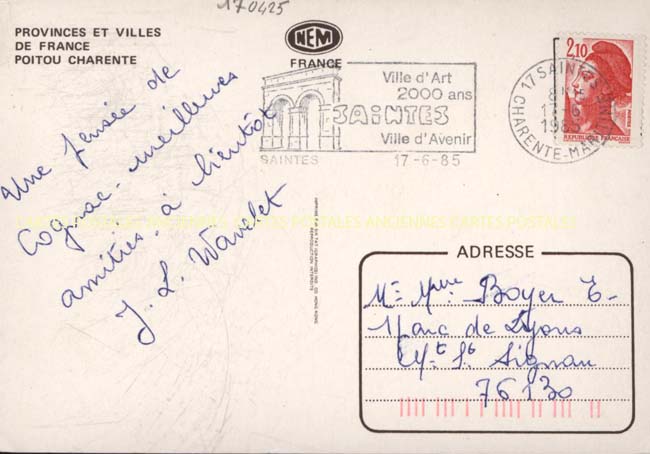 170425
PROVINCES ET VILLES
DE FRANCE
POITOU CHARENTE
NEM
FRANCE
Une pensée de
Cognac - meilleures
amitiés. à bientôt
J. L. Wavelet
Ville d'Art
2000 ans
SAINTES
Ville d'Avenir
SAINTES 17-6-85
17 SAINTES
CHARENTE-MAR
2,10
REPUBLIQUE FRANÇAISE
CARTES POSTALES ANCIENNES CARTES POSTALES
ADRESSE
Mr Mme Boyer E-
Parc de
Mt St Aignan
76130